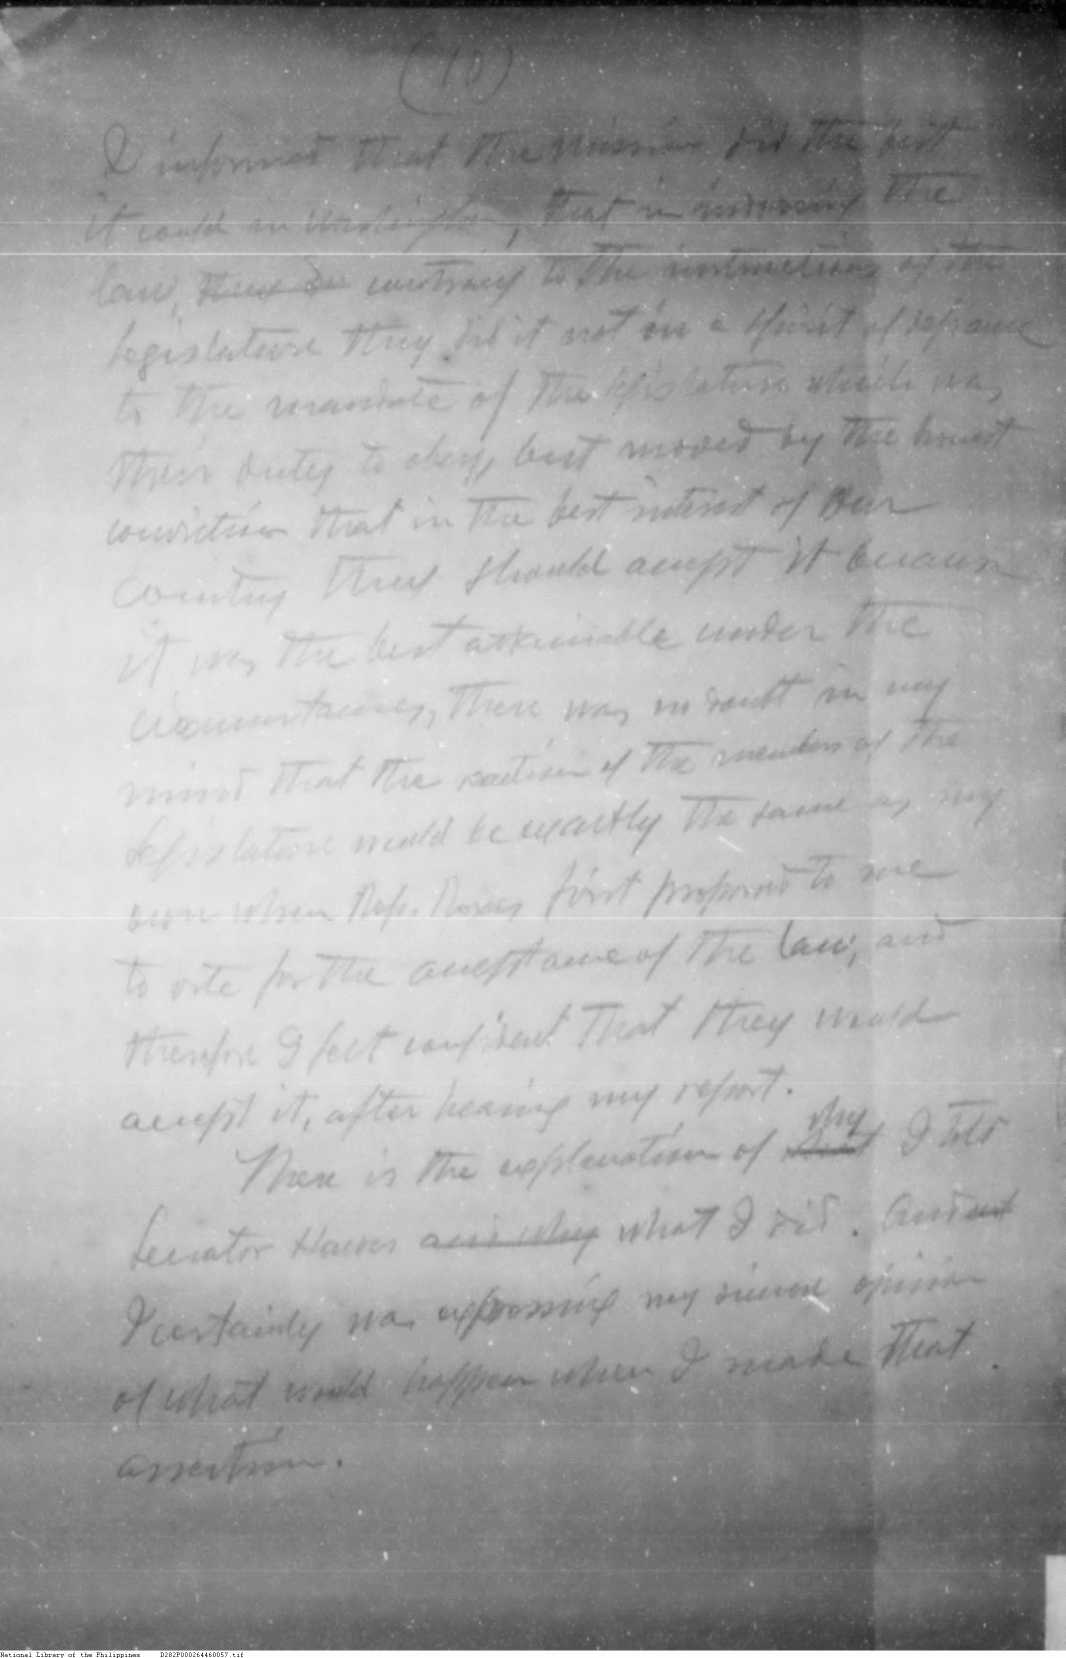 (10)
I informed that the Mission did the best
it could in Washington, that in indorsing the
law, they did contrary to the instructions of the
legislature they did it not in a spirit of defiance
to the mandate of the legislature which was
their duty to obey, but moved by the honest
conviction that in the best interest of our
country they should accept it because
it was the best attainable under the
circumstances, there was no doubt in my
mind that the reaction of the members of the
Legislature would be exactly the same as my
own when Rep. Roxas first proposed to me
to vote for the acceptance of the law, and
therefore I felt confident that they would
accept it, after hearing my report.
There is the explanation of why I told
Senator Hawes and why what I did. And
I certainly was expressing my sincere opinion
of what would happen when I made that
assertion.
National Library of the Philippines D282P000264460057.tif